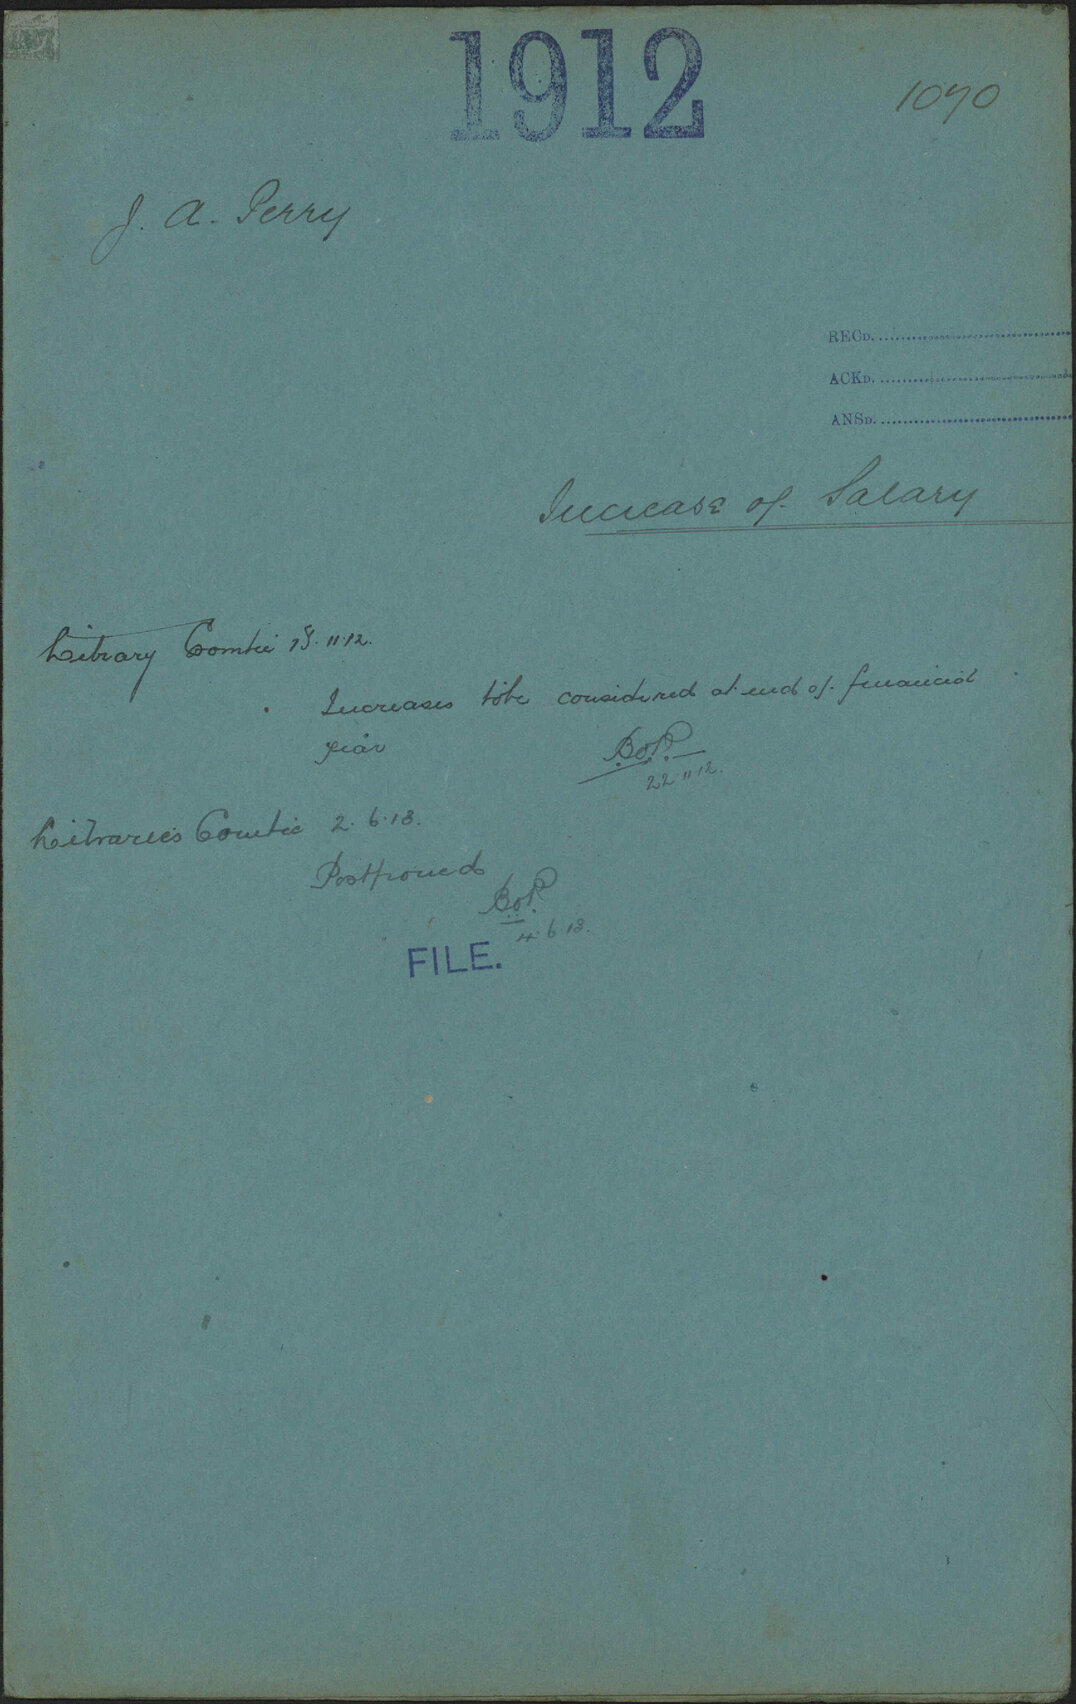 1912
1070
J. A. Perry
RECD.
ACKD.
ANSD.
Increase of Salary
Library Comtee 18.11.12.
Increases tobe considered at end of financial
year
BoP.
22.11.12.
Libraries Comtee 2.6.13.
Postponed
BoP.
4.6.13.
FILE.